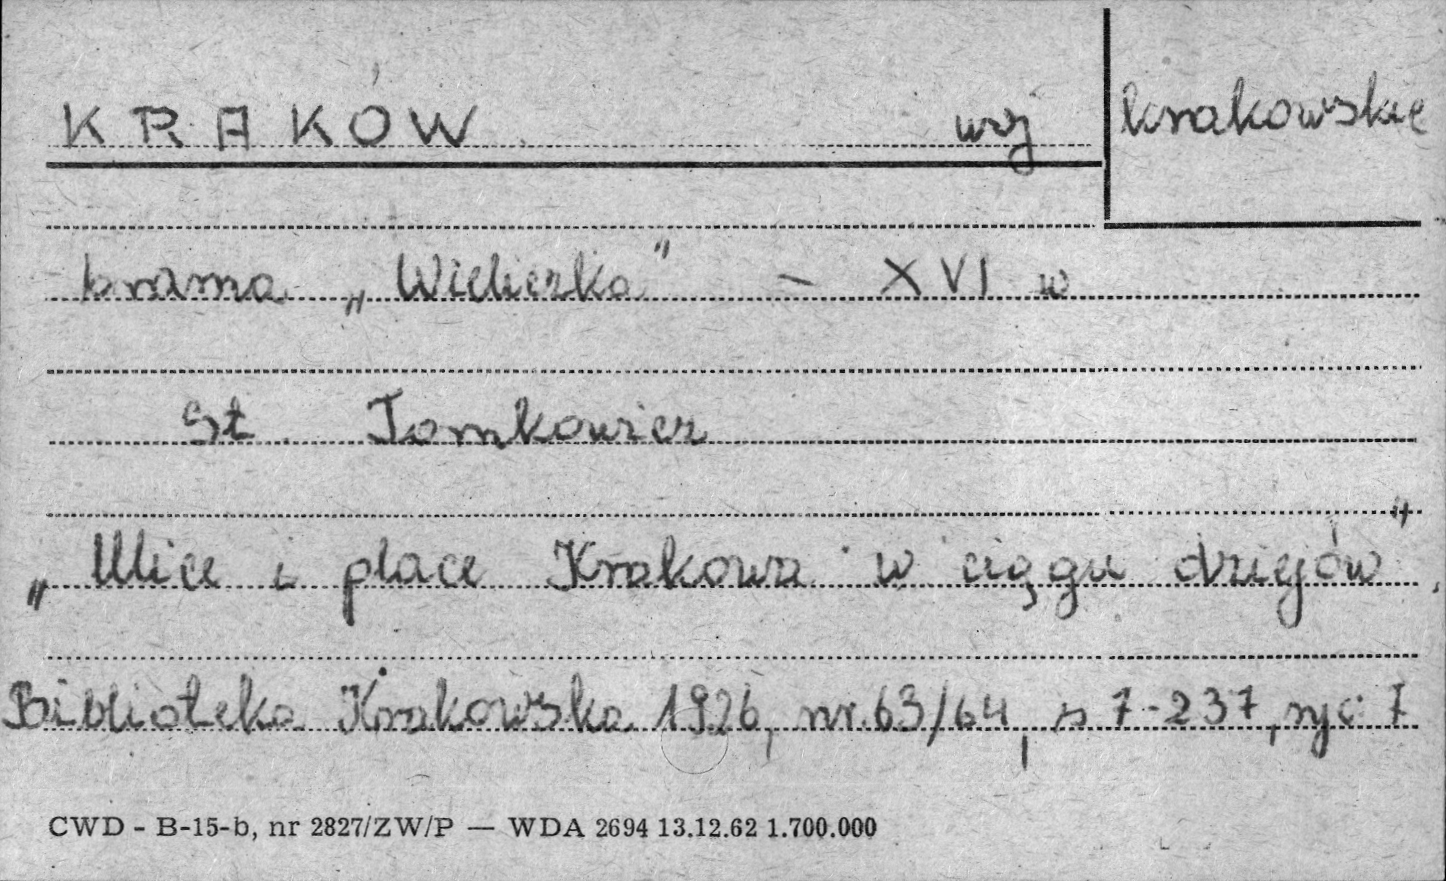 KRAKÓW woj krakowskie
brama „Wielicka" – XVI w
St. Tomkowicz
„Ulice i place Krakowa w ciągu dziejów",
Biblioteka Krakowska 1926, nr. 63/64, s 7-237, ryc 7
CWD - B-15-b, nr 2827/ZW/P — WDA 2694 13.12.62 1.700.000